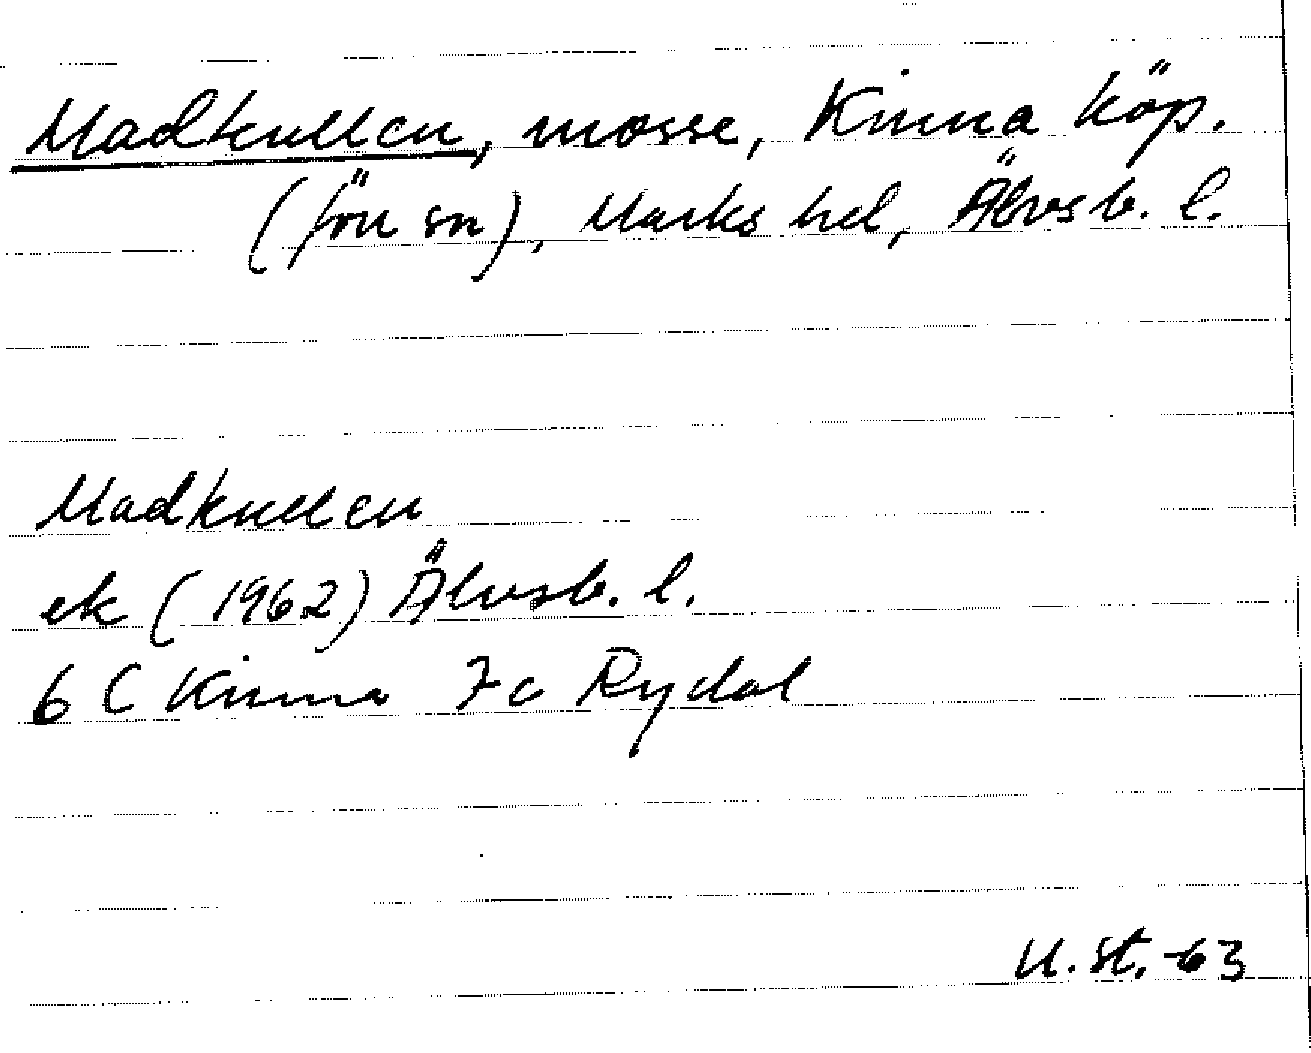 Madkullen, mosse, Kinna köp.
(förr sn), Marks hd, Älvsb. l.
Madkullen
ek (1962) Älvsb. l.
6 C Kinna 7c Rydal
U. St. -63